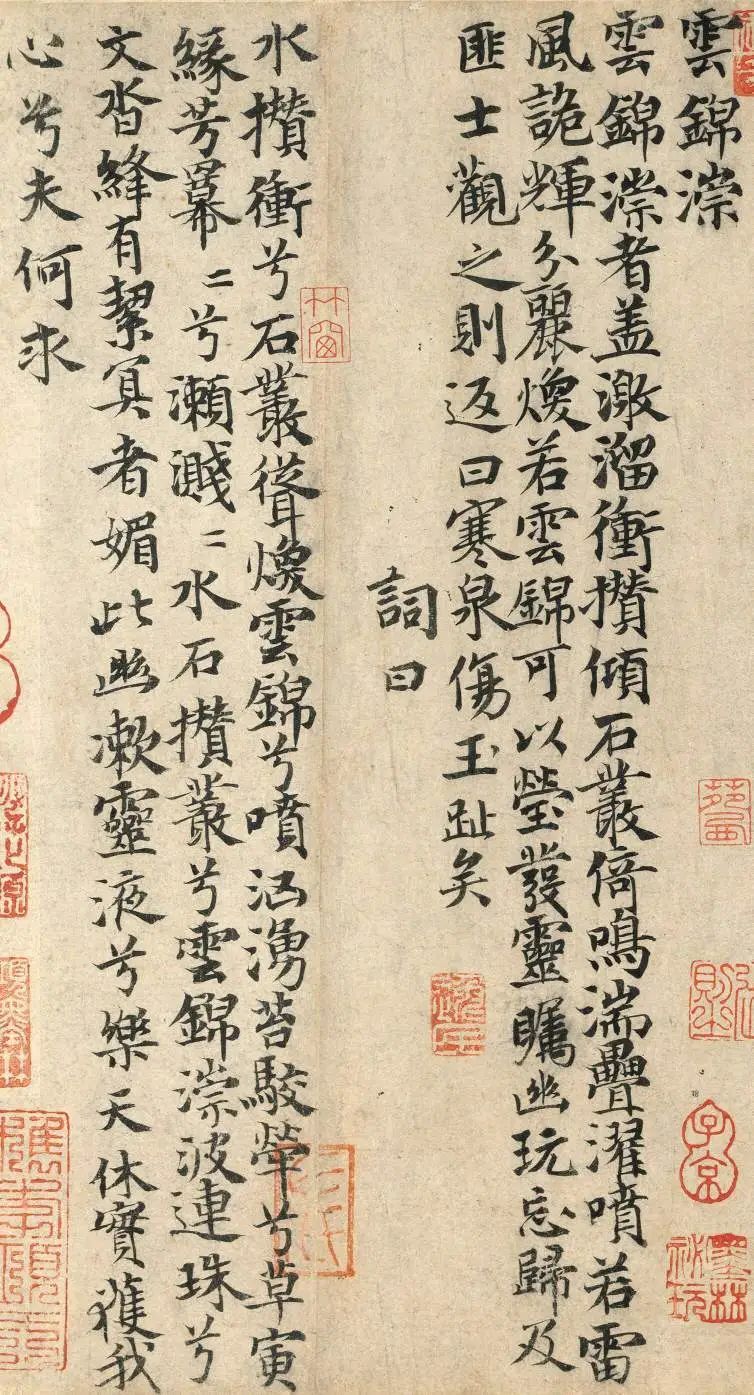 雲錦淙
雲錦淙者盖激溜衝攢傾石叢倚鳴湍疊濯噴若雷
風詭輝分麗煥若雲錦可以瑩發靈矚幽玩忘歸及
匪士觀之則返曰寒泉傷玉趾矣
詞曰
水攢衝兮石叢聳煥雲錦兮噴洶湧苔駮犖兮草寅
緣芳冪〻兮瀨濺〻水石攢叢兮雲錦淙波連珠兮
文沓縫有絜冥者媚此幽漱靈液兮樂天休實獲我
心兮夫何求
子京
墨林
祕玩